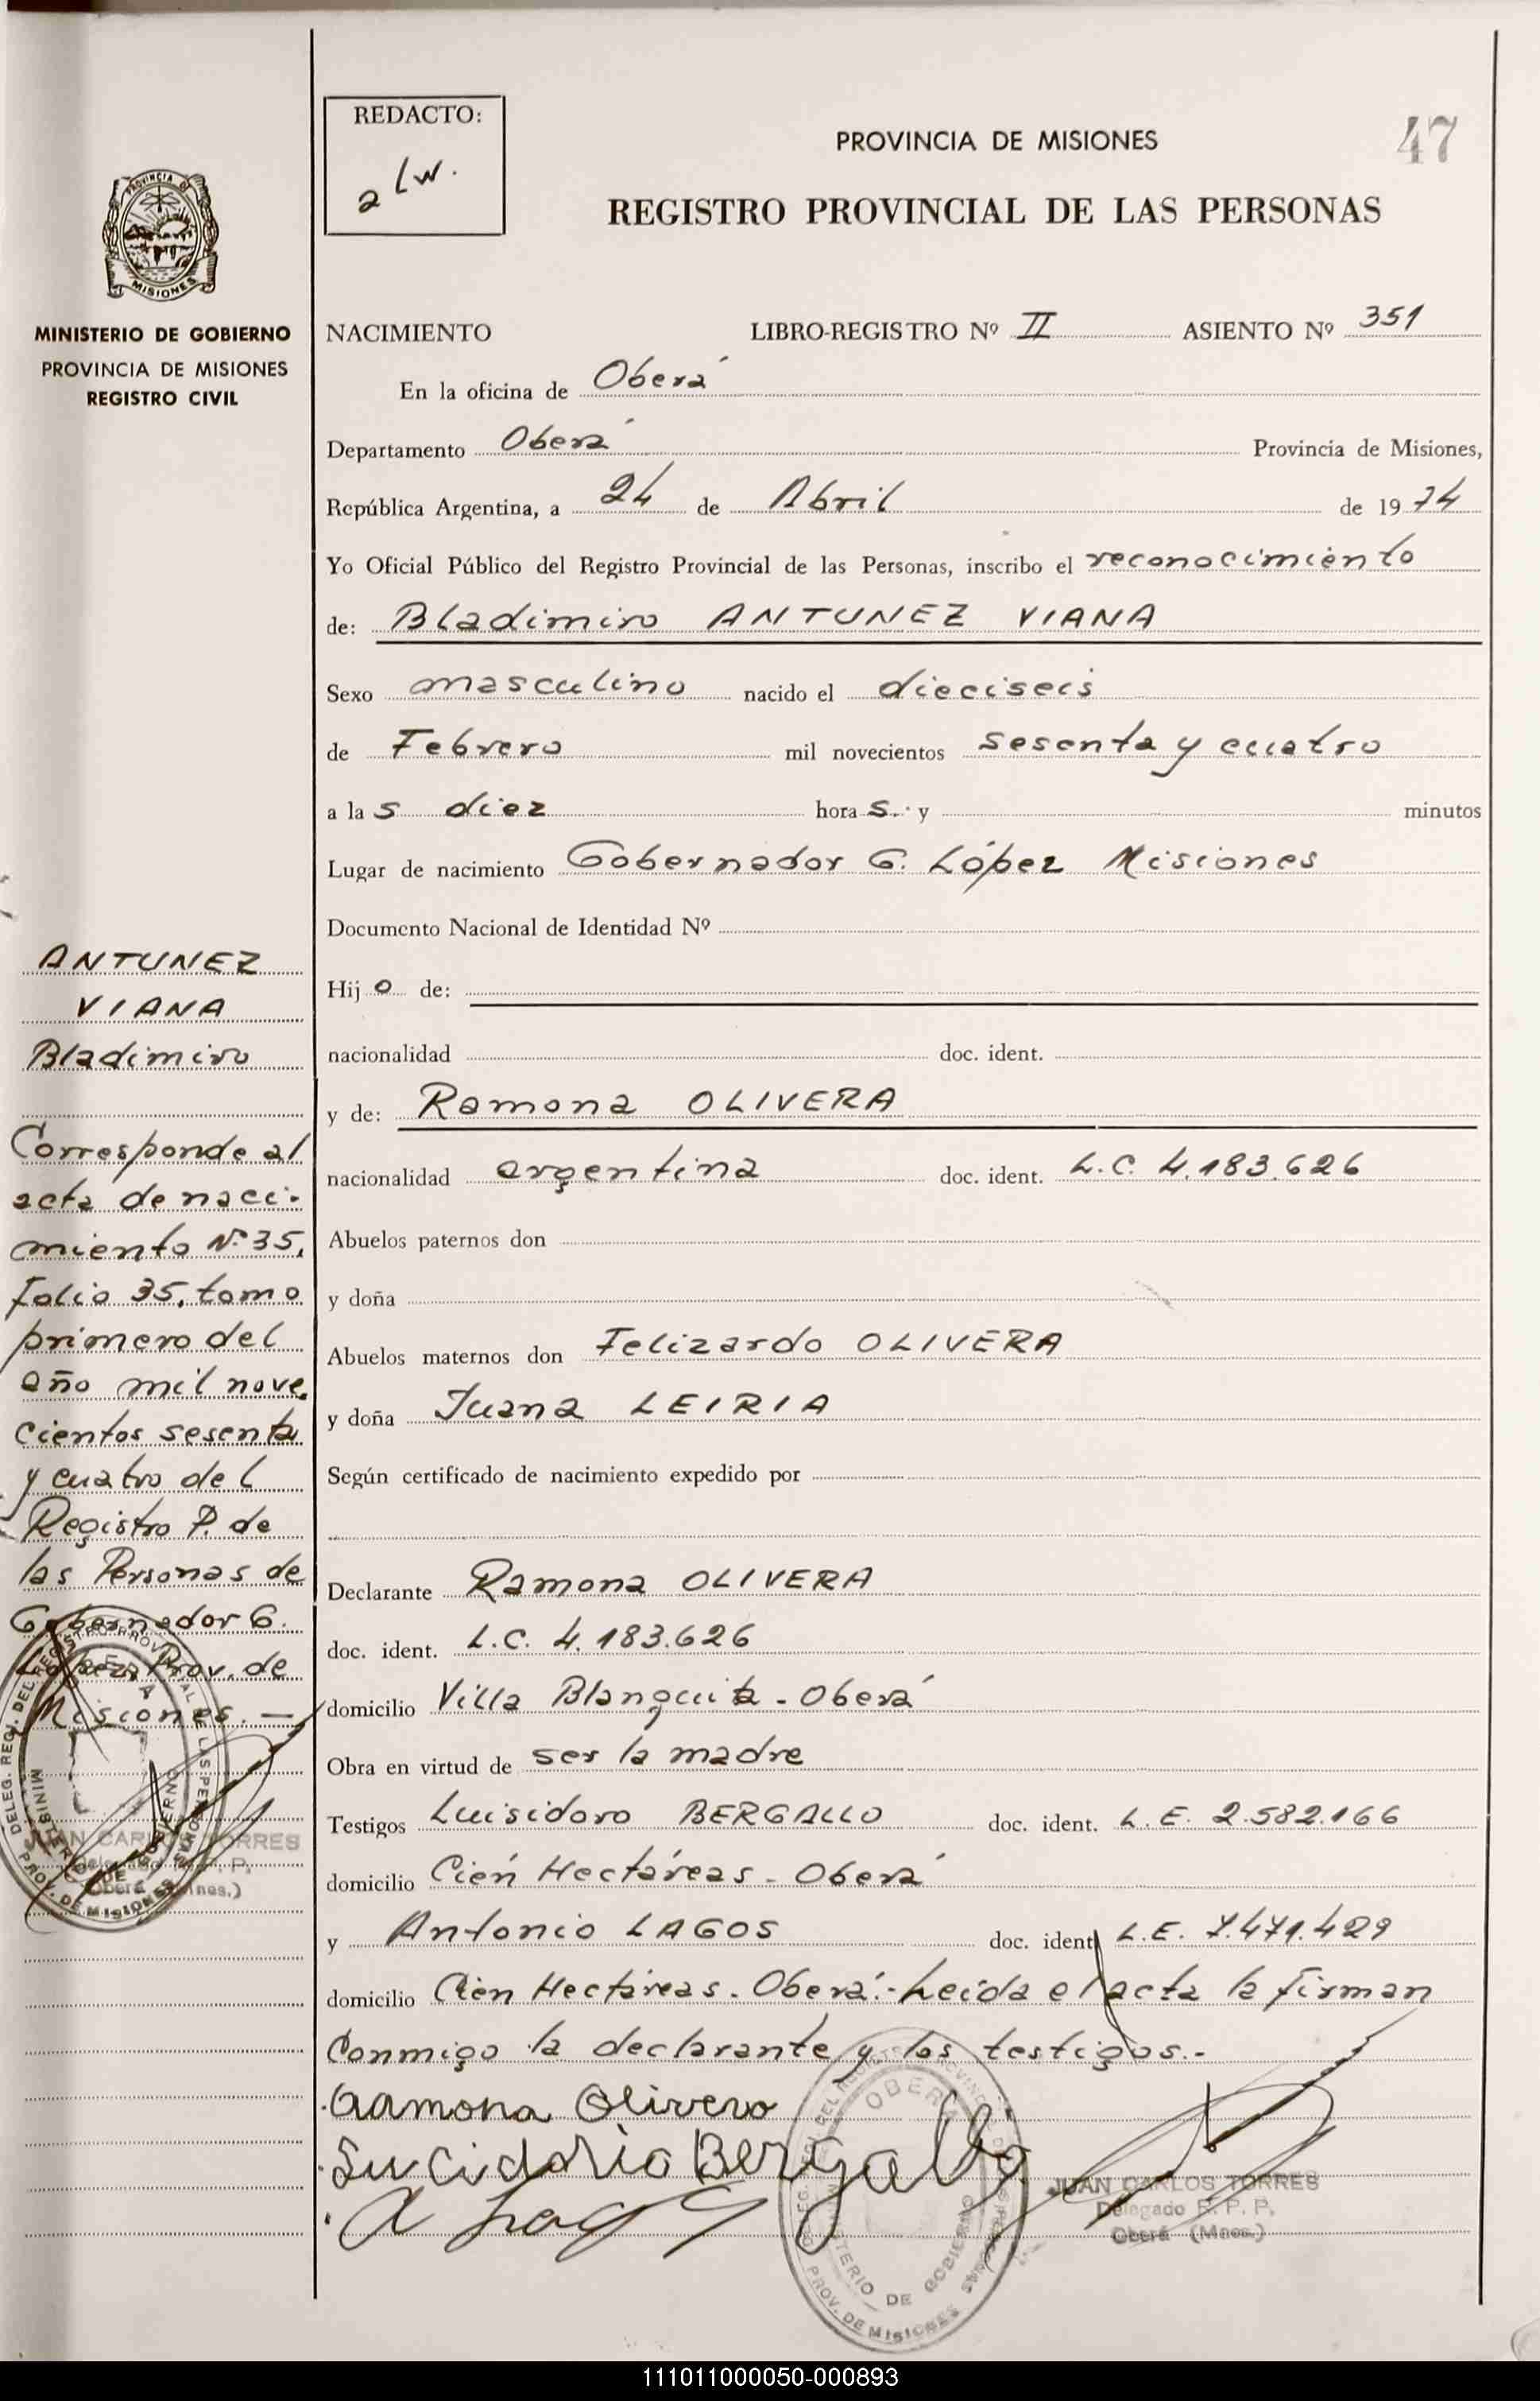 REDACTO:
PROVINCIA DE MISIONES
47
REGISTRO PROVINCIAL DE LAS PERSONAS
PROVINCIA DE
MISIONES
MINISTERIO DE GOBIERNO
PROVINCIA DE MISIONES
REGISTRO CIVIL
NACIMIENTO LIBRO-REGISTRO Nº II ASIENTO Nº 351
En la oficina de Oberá
Departamento Oberá Provincia de Misiones,
República Argentina, a 24 de Abril de 1974
Yo Oficial Público del Registro Provincial de las Personas, inscribo el reconocimiento
de: Bladimiro ANTUNEZ VIANA
Sexo masculino nacido el dieciseis
de Febrero mil novecientos sesenta y cuatro
a las diez horas. y minutos
Lugar de nacimiento Gobernador G. López Misiones
Documento Nacional de Identidad Nº
Hijo de:
nacionalidad doc. ident.
y de: Ramona OLIVERA
nacionalidad argentina doc. ident. L.C. 4.183.626
Abuelos paternos don
y doña
Abuelos maternos don Felizardo OLIVERA
y doña Juana LEIRIA
Según certificado de nacimiento expedido por
Declarante Ramona OLIVERA
doc. ident. L.C. 4.183.626
domicilio Villa Blanquita - Oberá
Obra en virtud de ser la madre
Testigos Luisidoro BERGALLO doc. ident. L.E. 2.582.166
domicilio Cién Hectáreas - Oberá
y Antonio LAGOS doc. ident. L.E. 7.471.429
domicilio Cién Hectáreas - Oberá.- Leída el acta la firman
conmigo la declarante y los testigos.-
Ramona Olivera
Bergallo
A Lagos
JUAN CARLOS TORRES
Delegado R. P. P.
Oberá (Mnes.)
DELEG. REGI. DEL REGISTRO PROVINCIAL DE LAS PERSONAS
OBERA
MINISTERIO DE GOBIERNO
PROV. DE MISIONES
ANTUNEZ
VIANA
Bladimiro
Corresponde al
acta de naci-
miento Nº 35,
folio 35, tomo
primero del
año mil nove
cientos sesenta
y cuatro del
Registro P. de
las Personas de
Gobernador G.
López, Prov. de
Misiones.-
DELEG. REGI. DEL REGISTRO PROVINCIAL DE LAS PERSONAS
OBERA
MINISTERIO DE GOBIERNO
PROV. DE MISIONES
JUAN CARLOS TORRES
Delegado R. P. P.
Oberá (Mnes.)
111011000050-000893